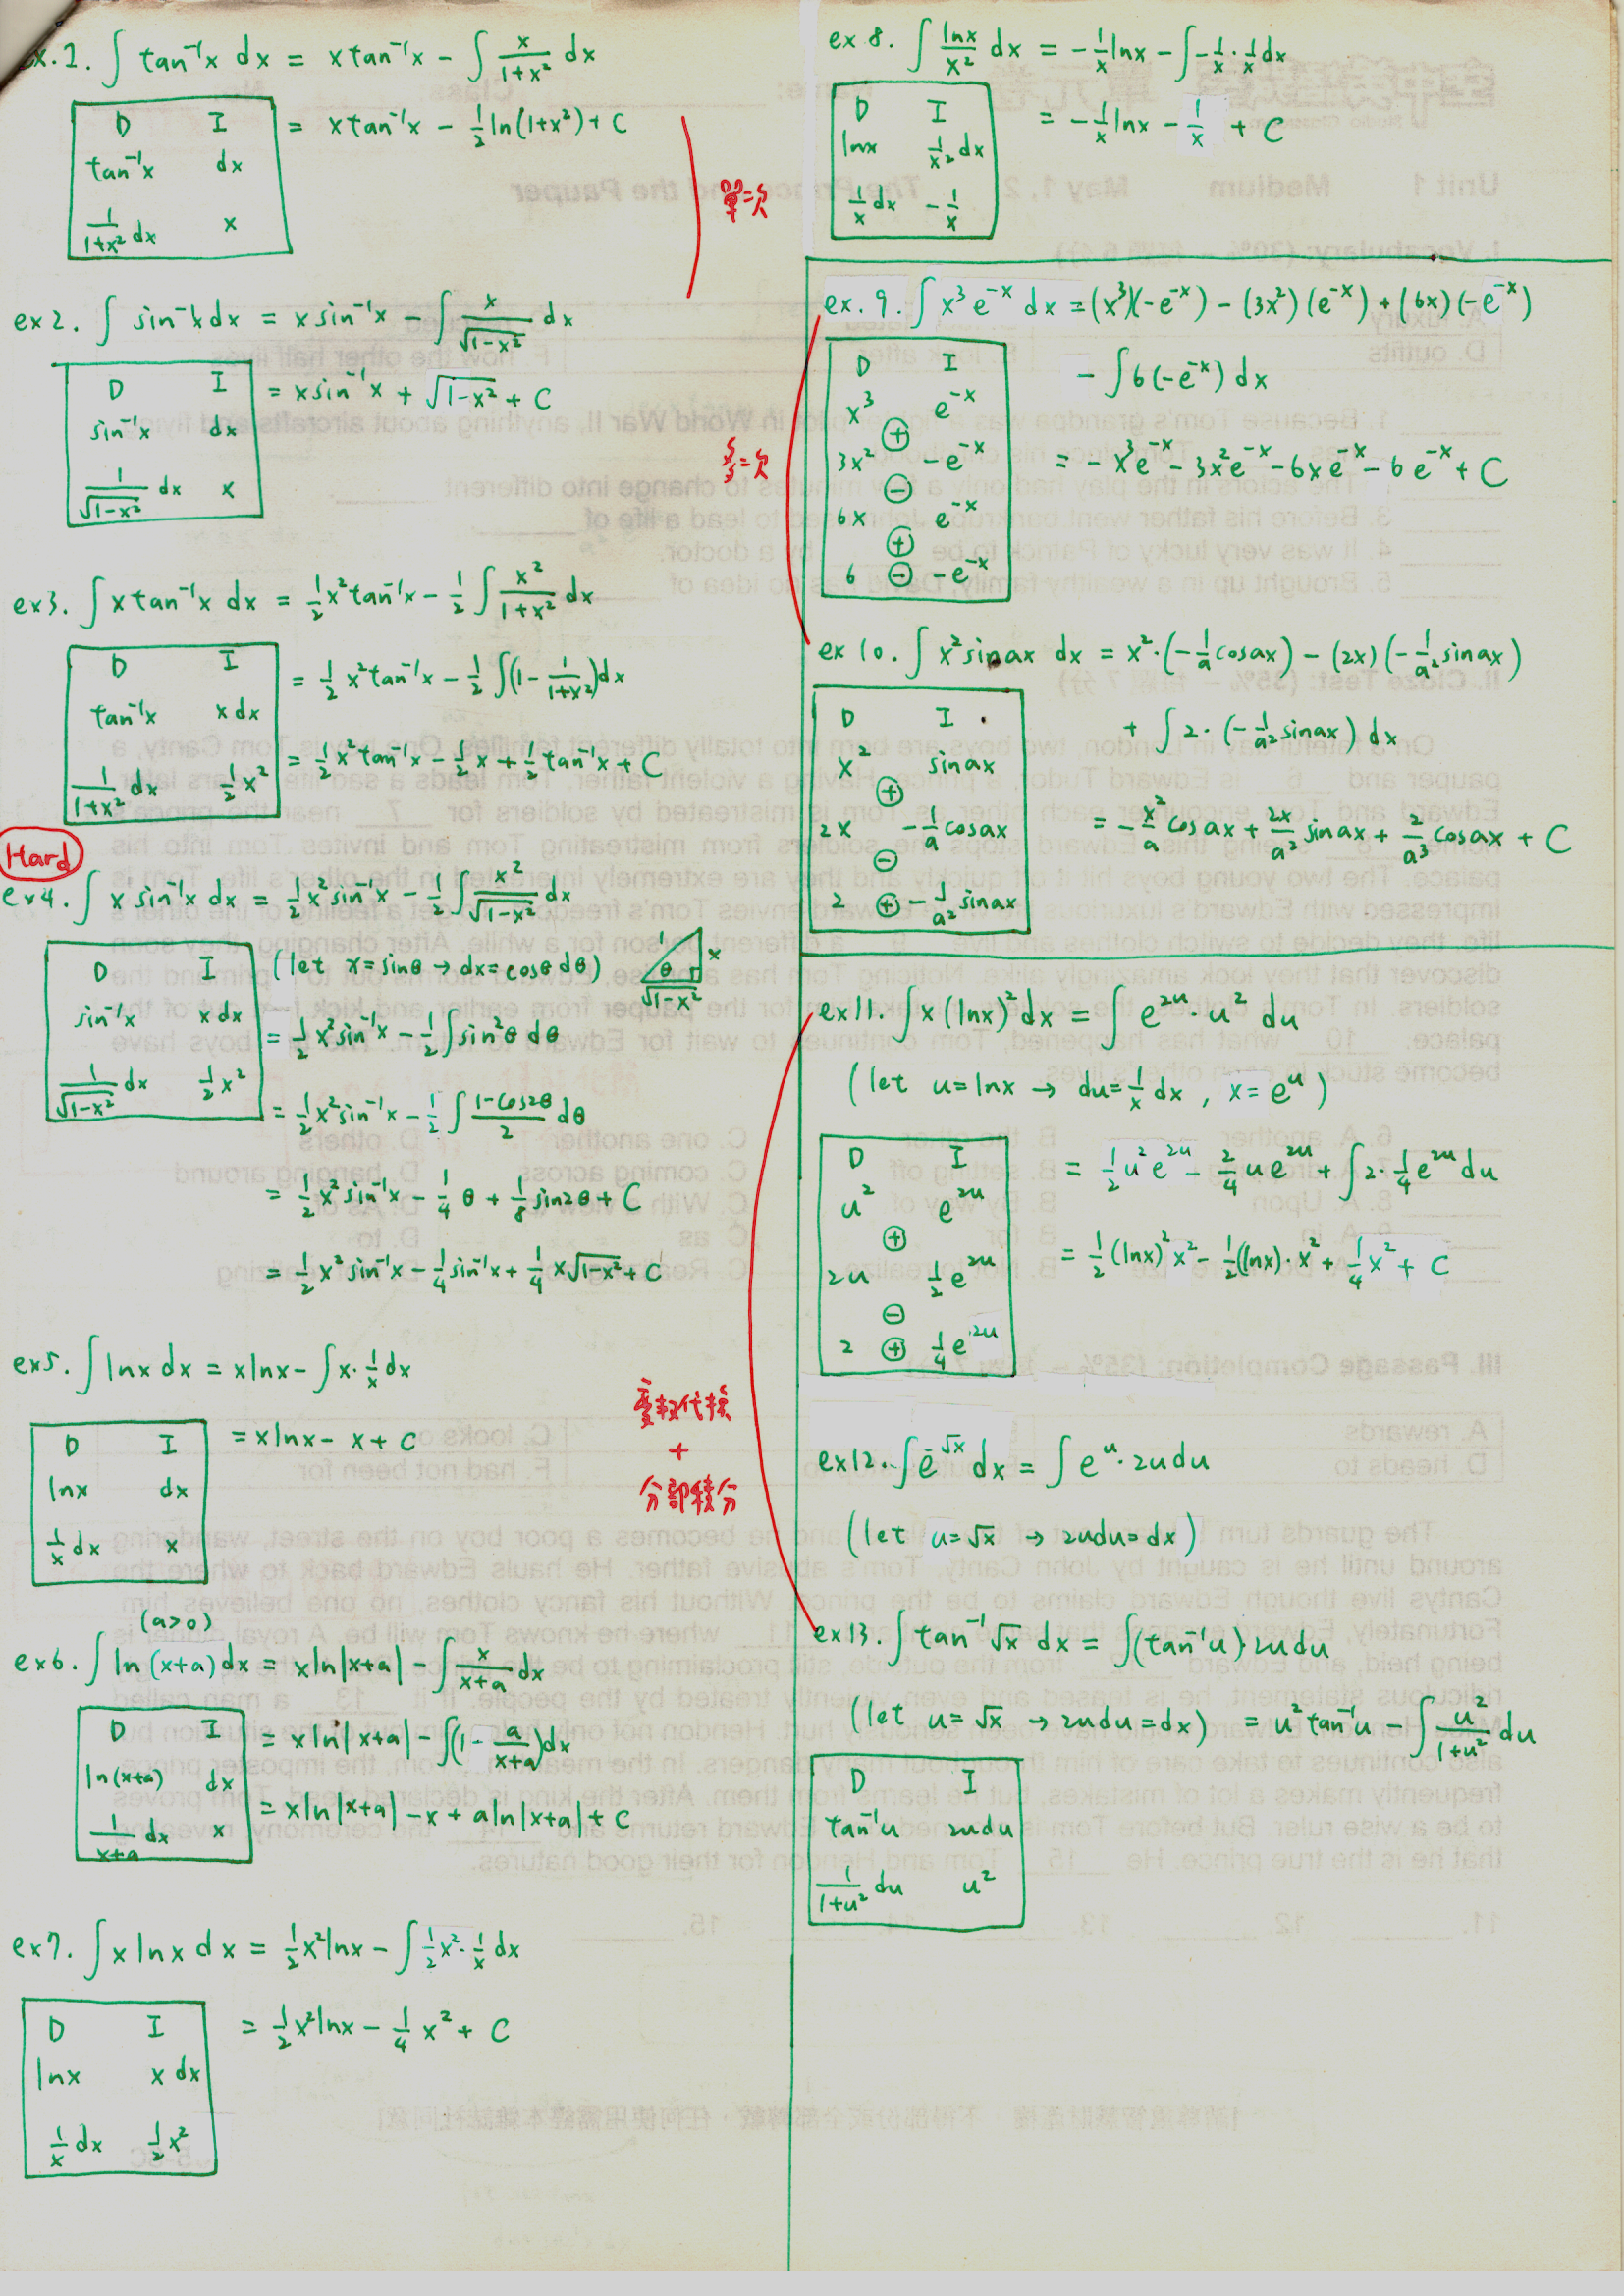 ex.1. ∫ tan⁻¹x dx = x tan⁻¹x − ∫ x/(1+x²) dx
D I
tan⁻¹x dx
1/(1+x²) dx x
= x tan⁻¹x − 1/2 ln(1+x²) + C
單=次
ex2. ∫ sin⁻¹x dx = x sin⁻¹x − ∫ x/√(1-x²) dx
D I
sin⁻¹x dx
1/√(1-x²) dx x
= x sin⁻¹x + √(1-x²) + C
ex3. ∫ x tan⁻¹x dx = 1/2 x² tan⁻¹x − 1/2 ∫ x²/(1+x²) dx
D I
tan⁻¹x x dx
1/(1+x²) dx 1/2 x²
= 1/2 x² tan⁻¹x − 1/2 ∫(1 − 1/(1+x²))dx
= 1/2 x² tan⁻¹x − 1/2 x + 1/2 tan⁻¹x + C
Hard
ex4. ∫ x sin⁻¹x dx = 1/2 x² sin⁻¹x − 1/2 ∫ x²/√(1-x²) dx
D I
sin⁻¹x x dx
1/√(1-x²) dx 1/2 x²
(let x = sinθ → dx = cosθ dθ)
1 x θ √(1-x²)
= 1/2 x² sin⁻¹x − 1/2 ∫ sin²θ dθ
= 1/2 x² sin⁻¹x − 1/2 ∫ (1-cos2θ)/2 dθ
= 1/2 x² sin⁻¹x − 1/4 θ + 1/8 sin2θ + C
= 1/2 x² sin⁻¹x − 1/4 sin⁻¹x + 1/4 x√(1-x²) + C
ex5. ∫ lnx dx = x lnx − ∫ x · 1/x dx
D I
lnx dx
1/x dx x
= x lnx − x + C
(a>0)
ex6. ∫ ln(x+a) dx = x ln|x+a| − ∫ x/(x+a) dx
D I
ln(x+a) dx
1/(x+a) dx x
= x ln|x+a| − ∫(1 − a/(x+a))dx
= x ln|x+a| − x + a ln|x+a| + C
ex7. ∫ x lnx dx = 1/2 x² lnx − ∫ 1/2 x² · 1/x dx
D I
lnx x dx
1/x dx 1/2 x²
= 1/2 x² lnx − 1/4 x² + C
ex 8. ∫ lnx/x² dx = − 1/x lnx − ∫ − 1/x · 1/x dx
D I
lnx 1/x² dx
1/x dx − 1/x
= − 1/x lnx − 1/x + C
ex. 9. ∫ x³ e⁻ˣ dx = (x³)(−e⁻ˣ) − (3x²)(e⁻ˣ) + (6x)(−e⁻ˣ)
− ∫ 6(−e⁻ˣ) dx
D I
x³ e⁻ˣ
⊕
3x² −e⁻ˣ
⊖
6x e⁻ˣ
⊕
6 ⊖ −e⁻ˣ
= − x³e⁻ˣ − 3x²e⁻ˣ − 6xe⁻ˣ − 6e⁻ˣ + C
多=次
ex 10. ∫ x² sinax dx = x² · (− 1/a cosax) − (2x)(− 1/a² sinax)
+ ∫ 2 · (− 1/a² sinax) dx
D I
x² sinax
⊕
2x − 1/a cosax
⊖
2 ⊕ − 1/a² sinax
= − x²/a cosax + 2x/a² sinax + 2/a³ cosax + C
ex11. ∫ x (lnx)² dx = ∫ e²ᵘ · u² du
(let u = lnx → du = 1/x dx , x = eᵘ)
D I
u² e²ᵘ
⊕
2u 1/2 e²ᵘ
⊖
2 ⊕ 1/4 e²ᵘ
= 1/2 u² e²ᵘ − 2/4 u e²ᵘ + ∫ 2 · 1/4 e²ᵘ du
= 1/2 (lnx)² x² − 1/2 (lnx) · x² + 1/4 x² + C
變數代換
+
分部積分
ex12. ∫ e^√x dx = ∫ eᵘ · 2u du
(let u = √x → 2udu = dx)
ex13. ∫ tan⁻¹√x dx = ∫(tan⁻¹u) · 2u du
(let u = √x → 2udu = dx) = u² tan⁻¹u − ∫ u²/(1+u²) du
D I
tan⁻¹u 2udu
1/(1+u²) du u²